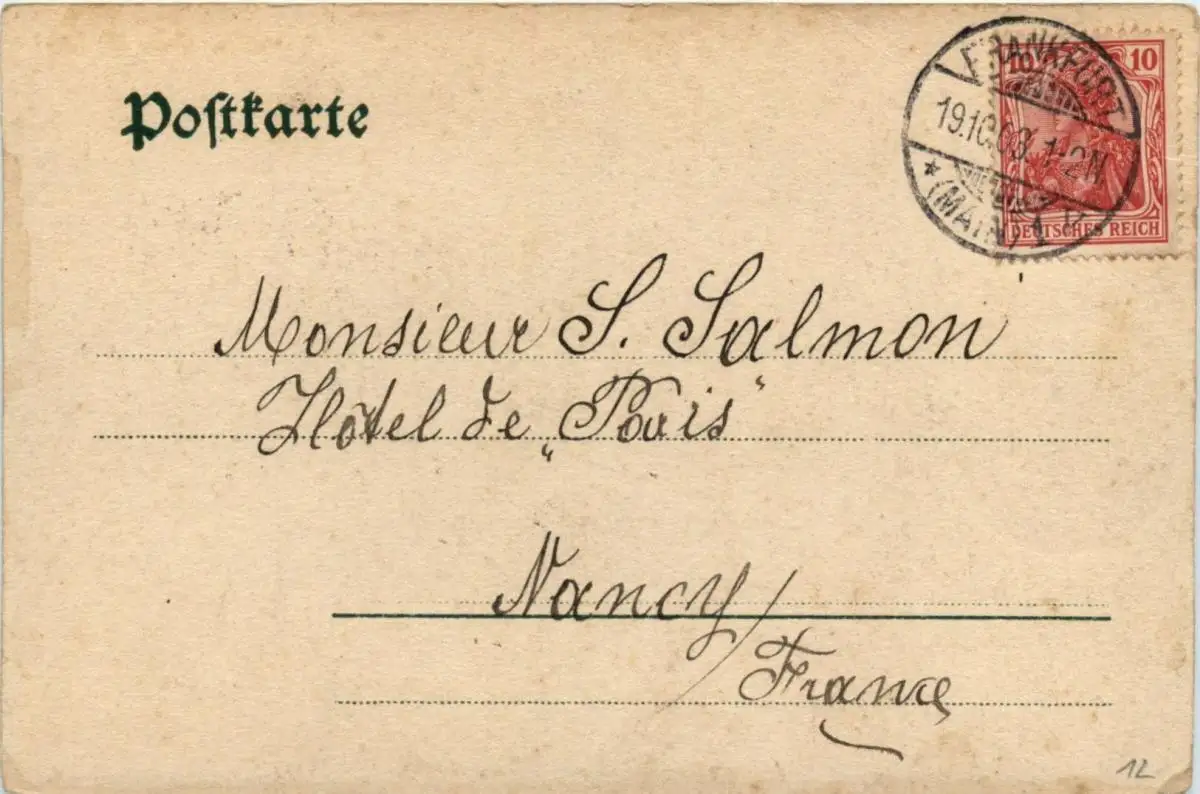 Postkarte
10 10
DEUTSCHES REICH
FRANKFURT
1-2N
* (MAIN) 1
Monsieur S. Salmon
Hôtel de „Paris“
Nancy/
France
12